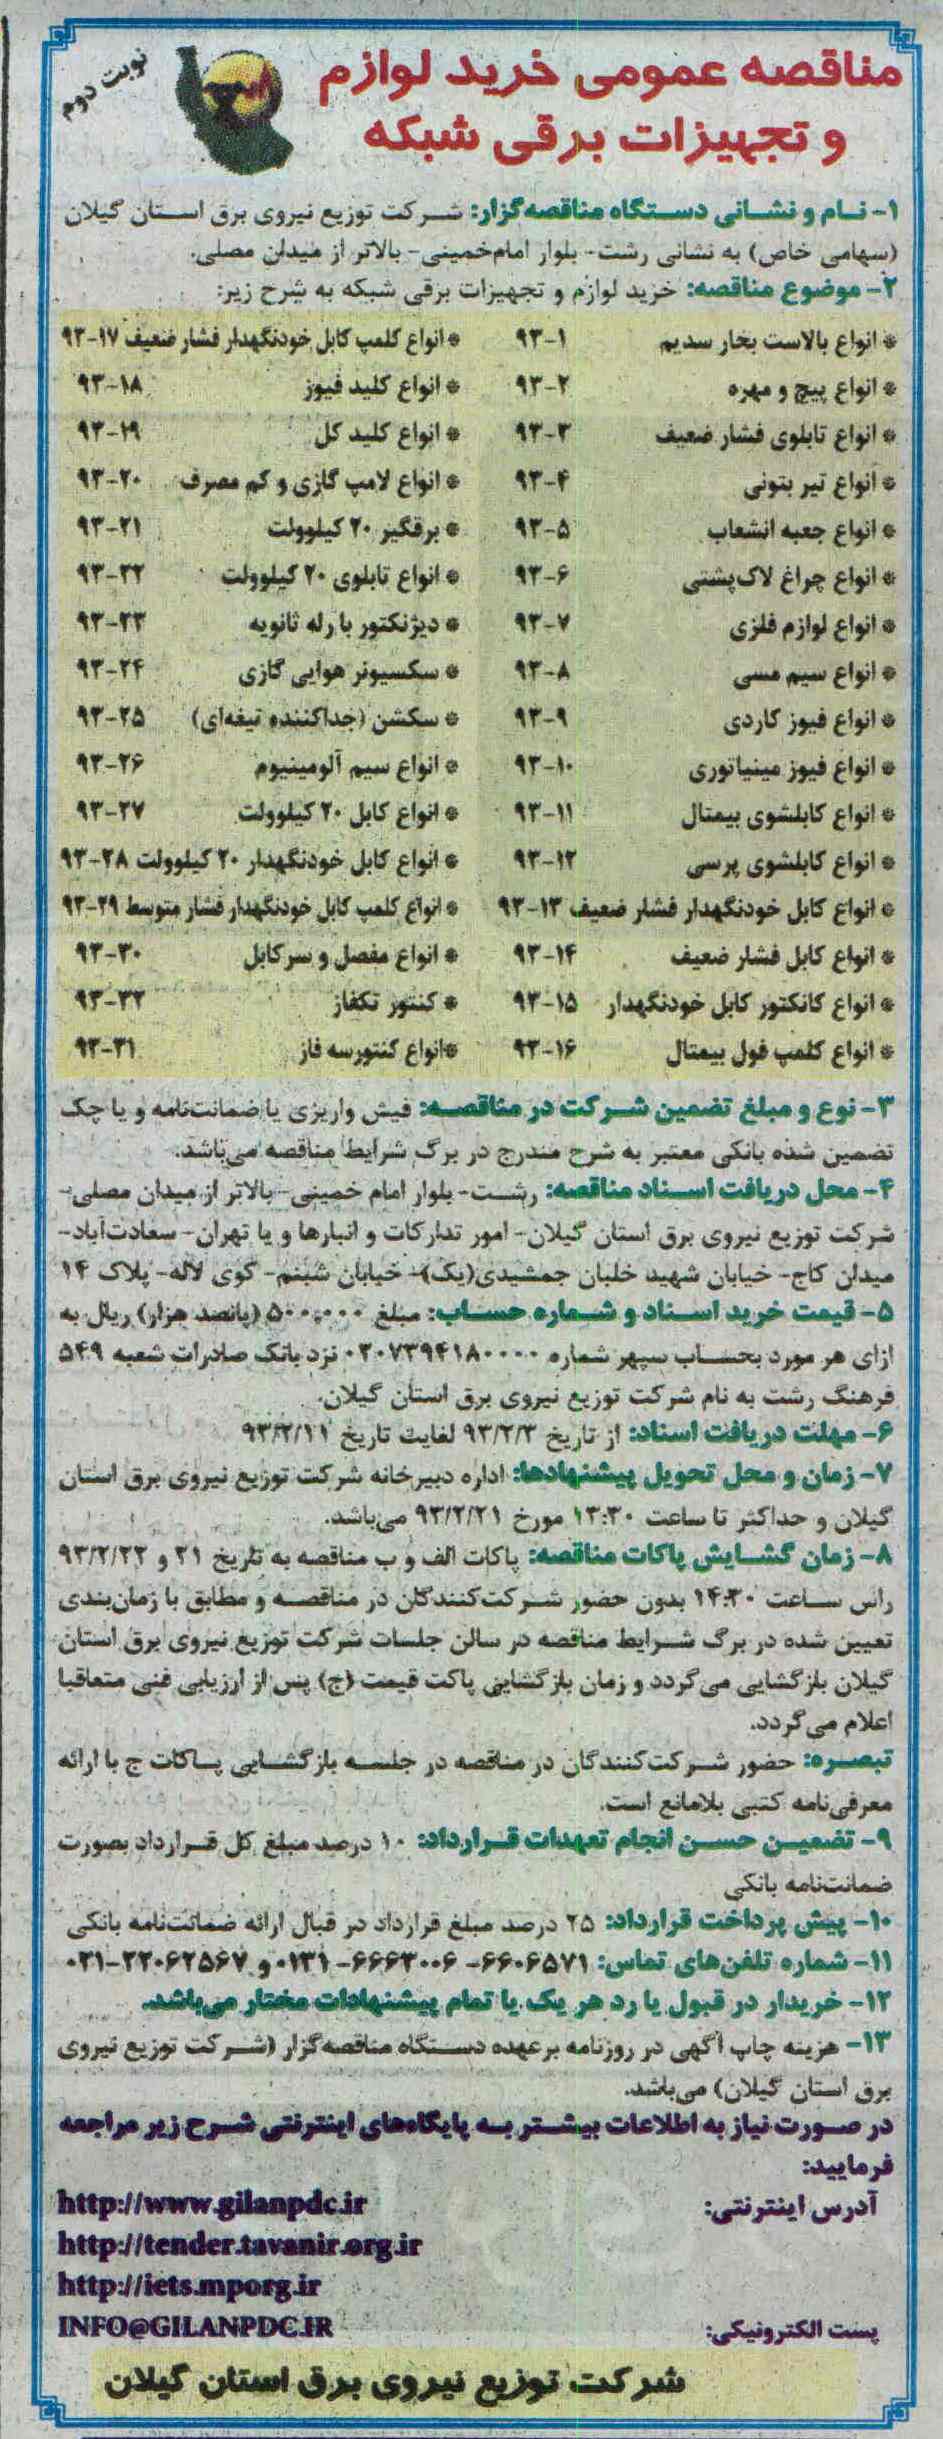 نوبت دوم
مناقصه عمومی خرید لوازم
و تجهیزات برقی شبکه
۱- نام و نشانی دستگاه مناقصه‌گزار: شرکت توزیع نیروی برق استان گیلان
(سهامی خاص) به نشانی رشت- بلوار امام‌خمینی- بالاتر از میدان مصلی.
۲- موضوع مناقصه: خرید لوازم و تجهیزات برقی شبکه به شرح زیر:
* انواع بالاست بخار سدیم ۱-۹۳
* انواع پیچ و مهره ۲-۹۳
* انواع تابلوی فشار ضعیف ۳-۹۳
* انواع تیر بتونی ۴-۹۳
* انواع جعبه انشعاب ۵-۹۳
* انواع چراغ لاک‌پشتی ۶-۹۳
* انواع لوازم فلزی ۷-۹۳
* انواع سیم مسی ۸-۹۳
* انواع فیوز کاردی ۹-۹۳
* انواع فیوز مینیاتوری ۱۰-۹۳
* انواع کابلشوی بیمتال ۱۱-۹۳
* انواع کابلشوی پرسی ۱۲-۹۳
* انواع کابل خودنگهدار فشار ضعیف ۱۳-۹۳
* انواع کابل فشار ضعیف ۱۴-۹۳
* انواع کانکتور کابل خودنگهدار ۱۵-۹۳
* انواع کلمپ فول بیمتال ۱۶-۹۳
* انواع کلمپ کابل خودنگهدار فشار ضعیف ۱۷-۹۳
* انواع کلید فیوز ۱۸-۹۳
* انواع کلید کل ۱۹-۹۳
* انواع لامپ گازی و کم مصرف ۲۰-۹۳
* برقگیر ۲۰ کیلوولت ۲۱-۹۳
* انواع تابلوی ۲۰ کیلوولت ۲۲-۹۳
* دیژنکتور با رله ثانویه ۲۳-۹۳
* سکسیونر هوایی گازی ۲۴-۹۳
* سکشن (جداکننده تیغه‌ای) ۲۵-۹۳
* انواع سیم آلومینیوم ۲۶-۹۳
* انواع کابل ۲۰ کیلوولت ۲۷-۹۳
* انواع کابل خودنگهدار ۲۰ کیلوولت ۲۸-۹۳
* انواع کلمپ کابل خودنگهدار فشار متوسط ۲۹-۹۳
* انواع مفصل و سرکابل ۳۰-۹۳
* کنتور تکفاز ۳۲-۹۳
*انواع کنتورسه فاز ۳۱-۹۳
۳- نوع و مبلغ تضمین شرکت در مناقصه: فیش واریزی یا ضمانت‌نامه و یا چک
تضمین شده بانکی معتبر به شرح مندرج در برگ شرایط مناقصه می‌باشد.
۴- محل دریافت اسناد مناقصه: رشت- بلوار امام خمینی- بالاتر از میدان مصلی-
شرکت توزیع نیروی برق استان گیلان- امور تدارکات و انبارها و یا تهران- سعادت‌آباد-
میدان کاج- خیابان شهید خلبان جمشیدی(یک)- خیابان شبنم- کوی لاله- پلاک ۱۴
۵- قیمت خرید اسناد و شماره حساب: مبلغ ۵۰۰,۰۰۰ (پانصد هزار) ریال به
ازای هر مورد بحساب سپهر شماره ۰۲۰۷۳۹۴۱۸۰۰۰۰ نزد بانک صادرات شعبه ۵۴۹
فرهنگ رشت به نام شرکت توزیع نیروی برق استان گیلان.
۶- مهلت دریافت اسناد: از تاریخ ۹۳/۲/۳ لغایت تاریخ ۹۳/۲/۱۱
۷- زمان و محل تحویل پیشنهادها: اداره دبیرخانه شرکت توزیع نیروی برق استان
گیلان و حداکثر تا ساعت ۱۳:۳۰ مورخ ۹۳/۲/۲۱ می‌باشد.
۸- زمان گشایش پاکات مناقصه: پاکات الف و ب مناقصه به تاریخ ۲۱ و ۹۳/۲/۲۲
راس ساعت ۱۴:۳۰ بدون حضور شرکت‌کنندگان در مناقصه و مطابق با زمان‌بندی
تعیین شده در برگ شرایط مناقصه در سالن جلسات شرکت توزیع نیروی برق استان
گیلان بازگشایی می‌گردد و زمان بازگشایی پاکت قیمت (ج) پس از ارزیابی فنی متعاقبا
اعلام می‌گردد.
تبصره: حضور شرکت‌کنندگان در مناقصه در جلسه بازگشایی پاکات ج با ارائه
معرفی‌نامه کتبی بلامانع است.
۹- تضمین حسن انجام تعهدات قرارداد: ۱۰ درصد مبلغ کل قرارداد بصورت
ضمانت‌نامه بانکی
۱۰- پیش پرداخت قرارداد: ۲۵ درصد مبلغ قرارداد در قبال ارائه ضمانت‌نامه بانکی
۱۱- شماره تلفن‌های تماس: ۶۶۰۶۵۷۱- ۶۶۶۳۰۰۶-۰۱۳۱ و ۲۲۰۶۲۵۶۷-۰۲۱
۱۲- خریدار در قبول یا رد هر یک یا تمام پیشنهادات مختار می‌باشد.
۱۳- هزینه چاپ آگهی در روزنامه برعهده دستگاه مناقصه‌گزار (شرکت توزیع نیروی
برق استان گیلان) می‌باشد.
در صورت نیاز به اطلاعات بیشتر به پایگاه‌های اینترنتی شرح زیر مراجعه
فرمایید:
آدرس اینترنتی: http://www.gilanpdc.ir
http://tender.tavanir.org.ir
http://iets.mporg.ir
پست الکترونیکی: INFO@GILANPDC.IR
شرکت توزیع نیروی برق استان گیلان